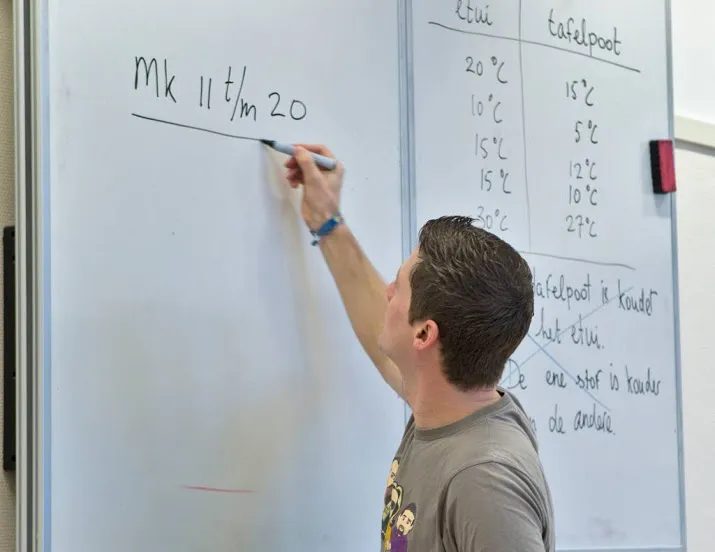 Mk 11 t/m 20
etui tafelpoot
20 °C 15 °C
10 °C 5 °C
15 °C 12 °C
15 °C 10 °C
30 °C 27 °C
tafelpoot is kouder
het etui.
De ene stof is kouder
de andere.